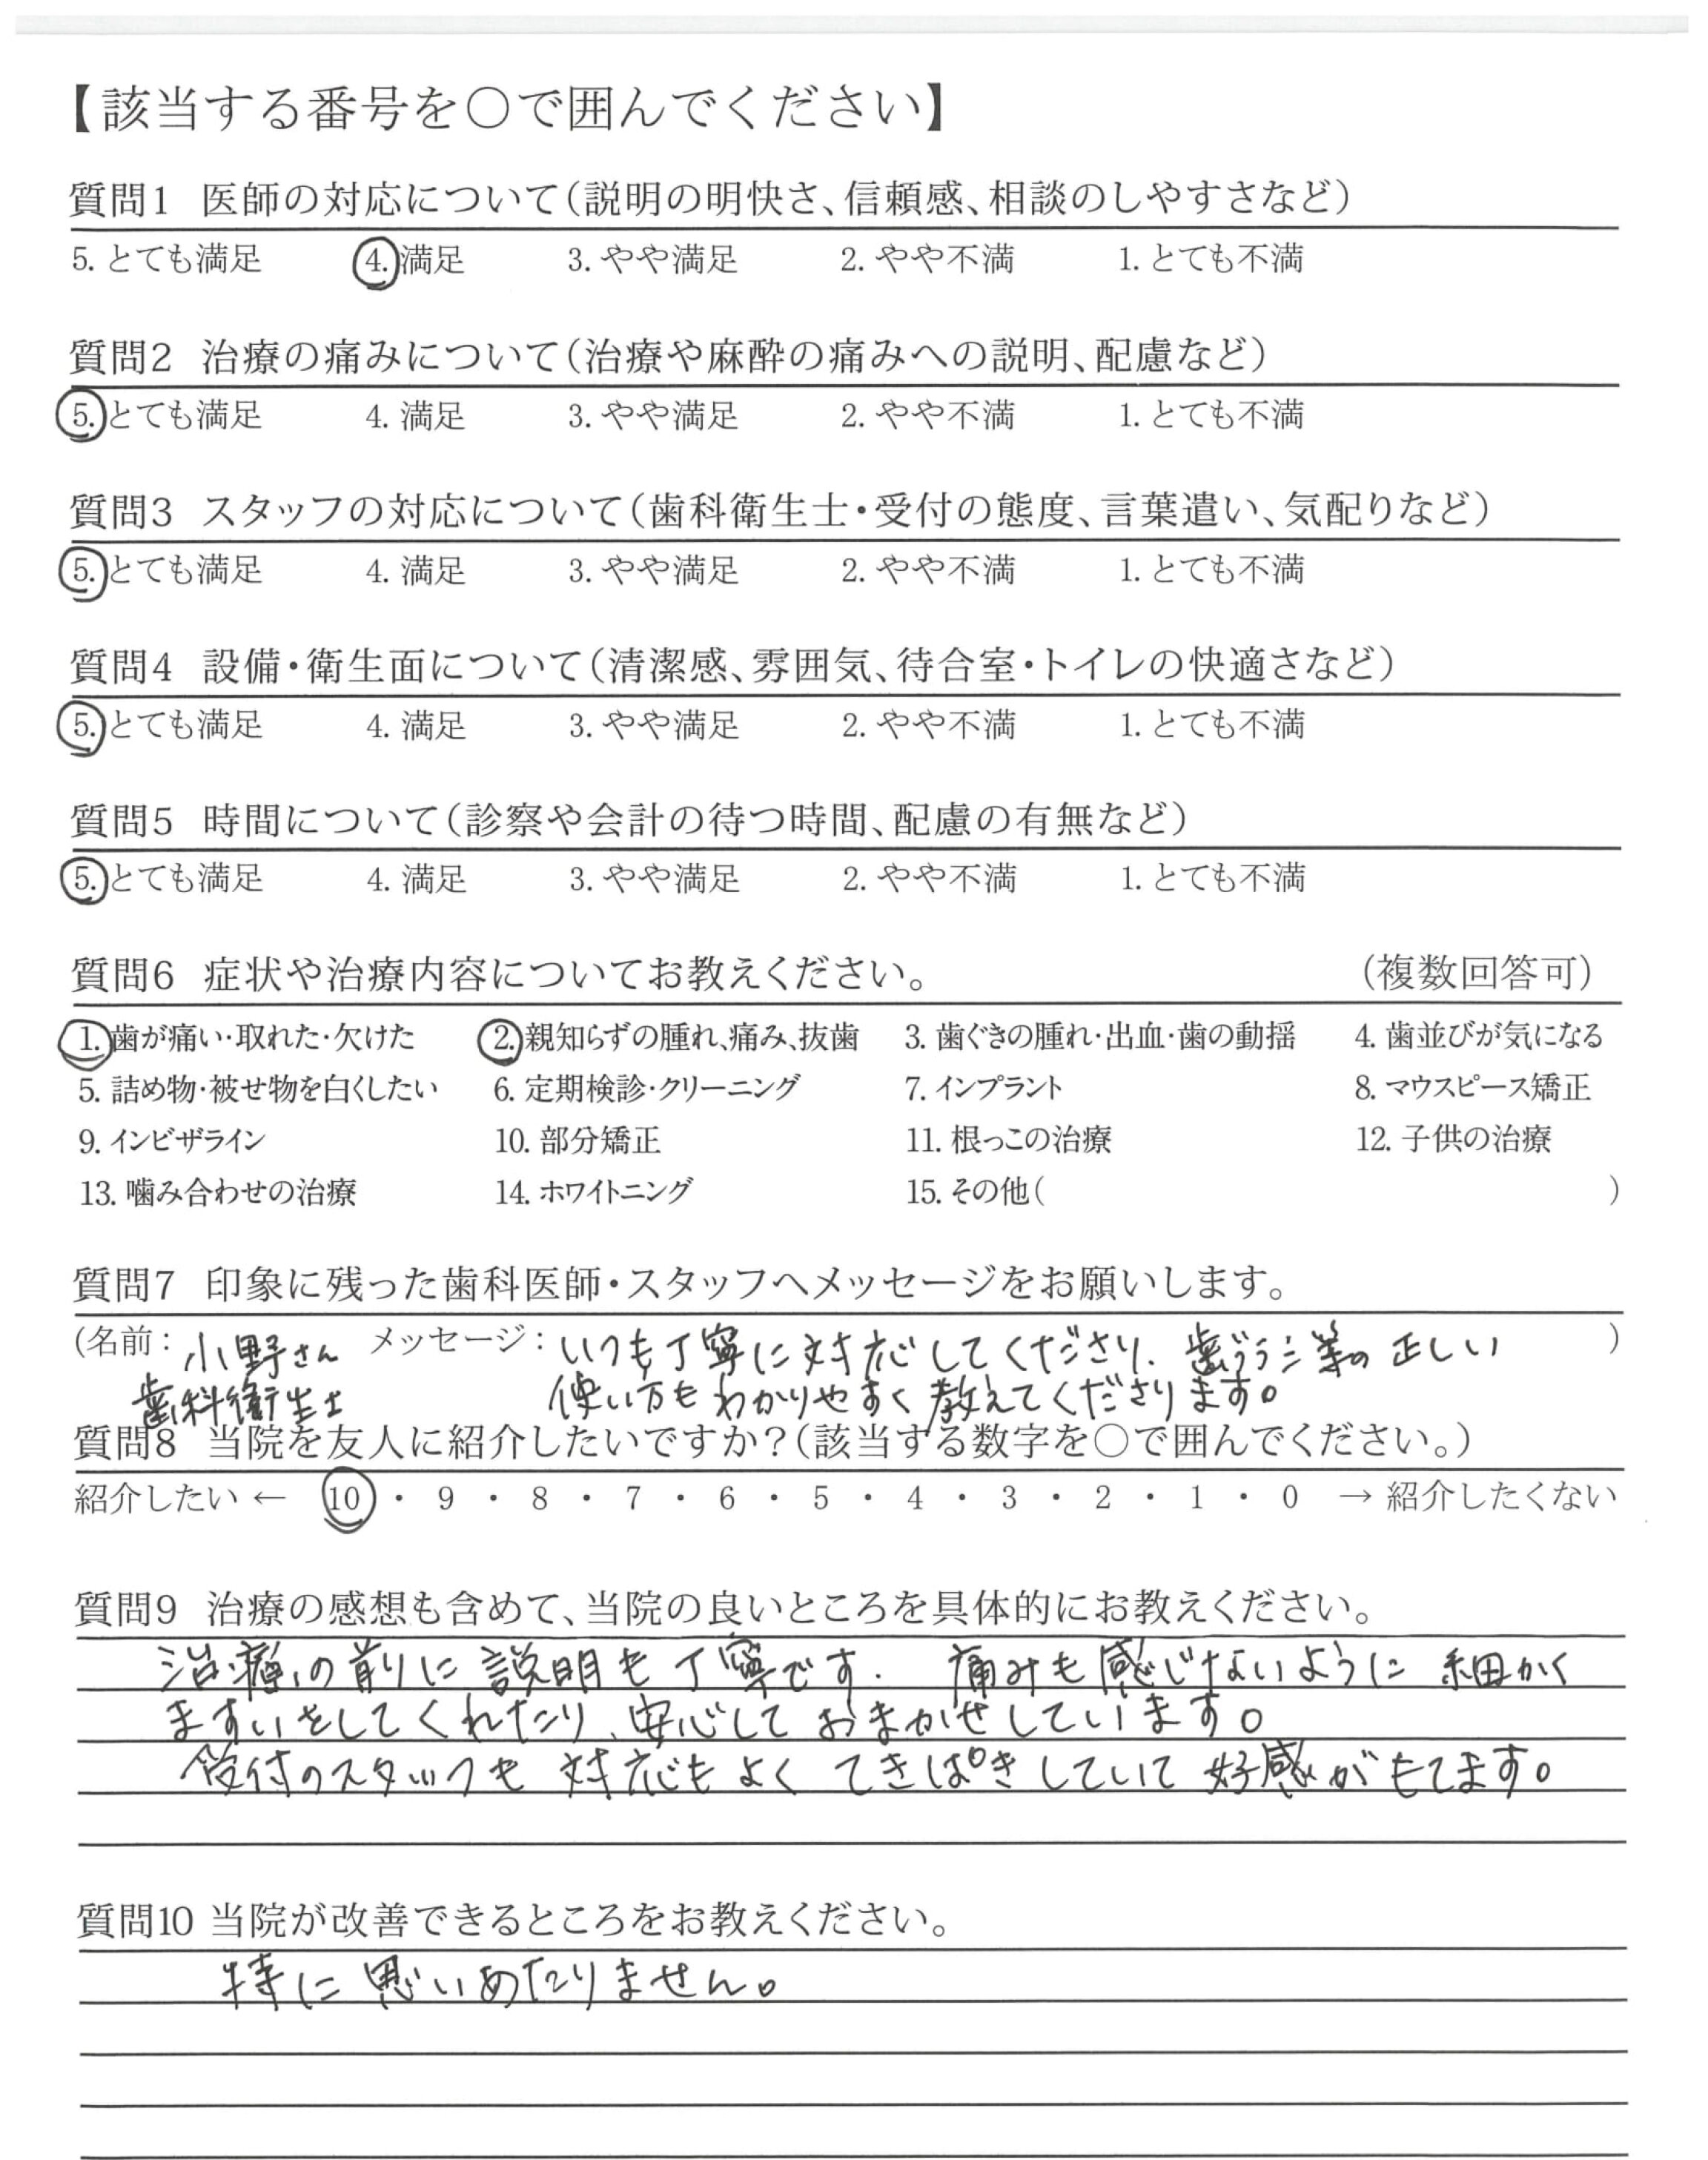 【該当する番号を○で囲んでください】
質問1 医師の対応について(説明の明快さ、信頼感、相談のしやすさなど)
5. とても満足 4. 満足 3. やや満足 2. やや不満 1. とても不満
質問2 治療の痛みについて(治療や麻酔の痛みへの説明、配慮など)
5. とても満足 4. 満足 3. やや満足 2. やや不満 1. とても不満
質問3 スタッフの対応について(歯科衛生士・受付の態度、言葉遣い、気配りなど)
5. とても満足 4. 満足 3. やや満足 2. やや不満 1. とても不満
質問4 設備・衛生面について(清潔感、雰囲気、待合室・トイレの快適さなど)
5. とても満足 4. 満足 3. やや満足 2. やや不満 1. とても不満
質問5 時間について(診察や会計の待つ時間、配慮の有無など)
5. とても満足 4. 満足 3. やや満足 2. やや不満 1. とても不満
質問6 症状や治療内容についてお教えください。 (複数回答可)
1. 歯が痛い・取れた・欠けた 2. 親知らずの腫れ、痛み、抜歯 3. 歯ぐきの腫れ・出血・歯の動揺 4. 歯並びが気になる
5. 詰め物・被せ物を白くしたい 6. 定期検診・クリーニング 7. インプラント 8. マウスピース矯正
9. インビザライン 10. 部分矯正 11. 根っこの治療 12. 子供の治療
13. 噛み合わせの治療 14. ホワイトニング 15. その他( )
質問7 印象に残った歯科医師・スタッフへメッセージをお願いします。
(名前: 小野さん メッセージ: いつも丁寧に対応してくださり、歯ブラシ等の正しい )
歯科衛生士 使い方もわかりやすく教えてくださります。
質問8 当院を友人に紹介したいですか?(該当する数字を○で囲んでください。)
紹介したい ← 10 ・ 9 ・ 8 ・ 7 ・ 6 ・ 5 ・ 4 ・ 3 ・ 2 ・ 1 ・ 0 → 紹介したくない
質問9 治療の感想も含めて、当院の良いところを具体的にお教えください。
治療の前に説明も丁寧です。痛みも感じないように細かく
ますいをしてくれたり、安心しておまかせしています。
受付のスタッフも対応もよくてきぱきしていて好感がもてます。
質問10 当院が改善できるところをお教えください。
特に思いあたりません。